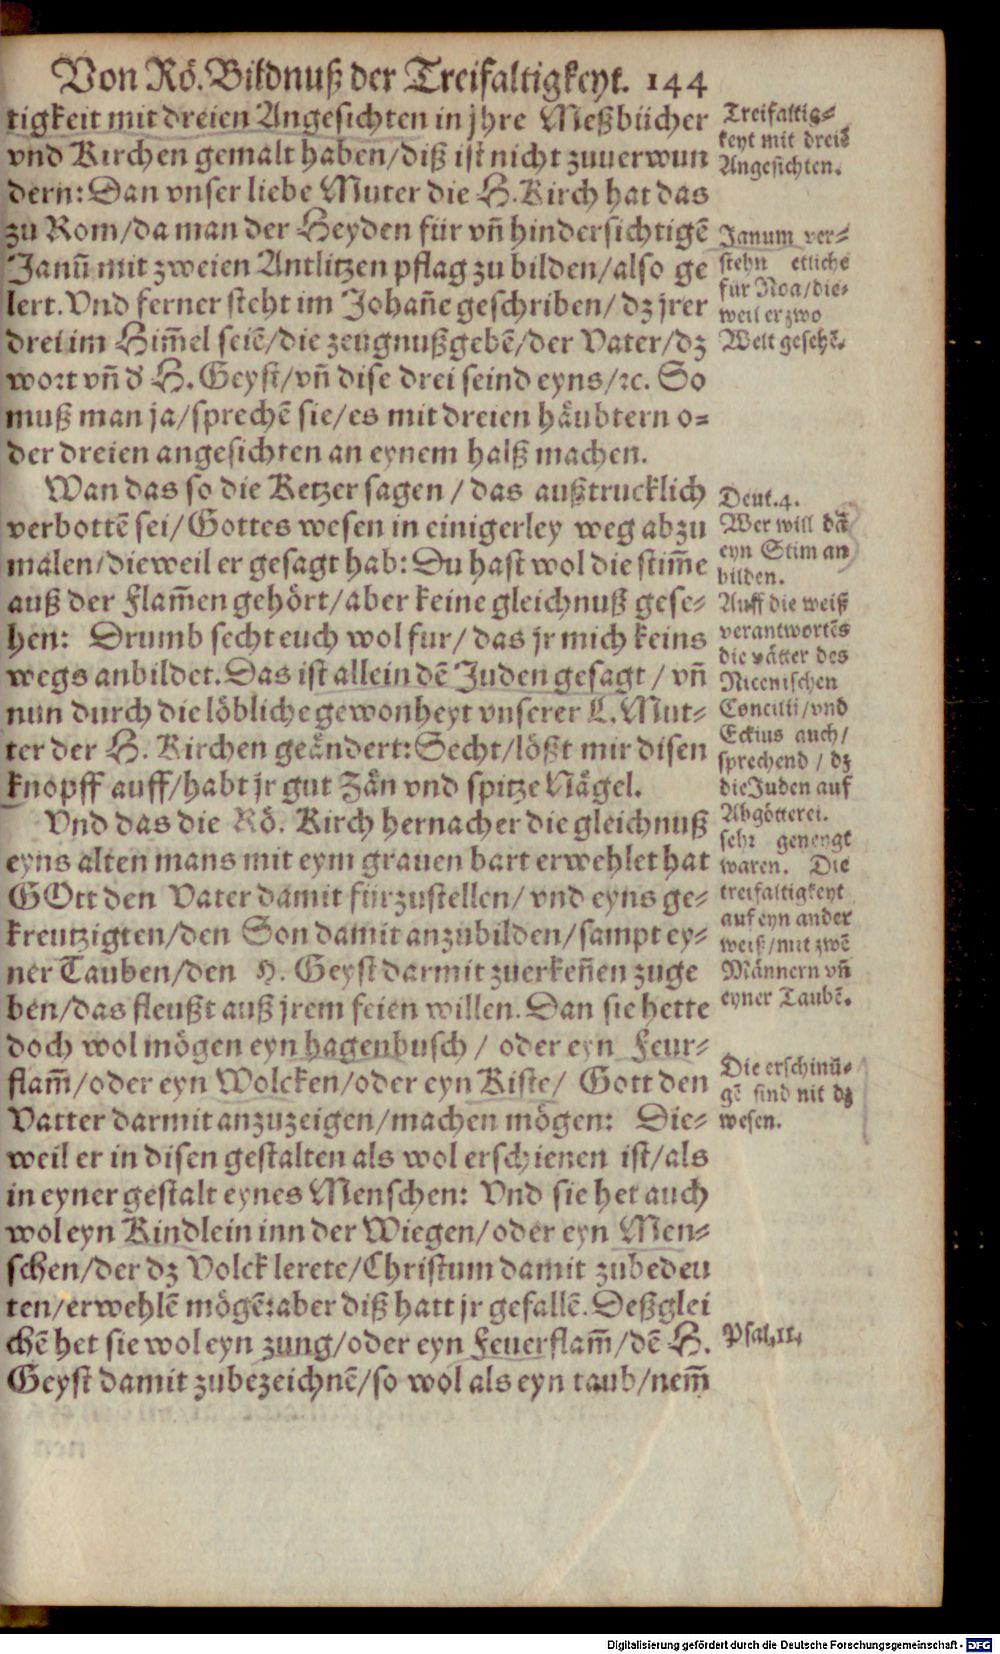 Von Rö. Bildnuß der Treifaltigkeyt. 144
tigkeit mit dreien Angesichten in jhre Meßbücher
vnd Kirchen gemalt haben/diß ist nicht zuuerwun
dern: Dan vnser liebe Muter die H. Kirch hat das
zu Rom/da man der Heyden für vñ hindersichtigẽ
Janũ mit zweien Antlitzen pflag zu bilden/also ge
lert. Vnd ferner steht im Johañe geschriben/ dz jrer
drei im Him̃el seiẽ/die zeugnuß gebẽ/der Vater/dz
wort vñ d' H. Geyst/vñ dise drei seind eyns/ꝛc. So
muß man ja/sprechẽ sie/es mit dreien häubtern o=
der dreien angesichten an eynem halß machen.
Wan das so die Ketzer sagen / das außtrucklich
verbottẽ sei/Gottes wesen in einigerley weg abzu
malen/dieweil er gesagt hab: Du hast wol die stim̃e
auß der Flam̃en gehört/aber keine gleichnuß gese=
hen: Drumb secht euch wol fur/ das jr mich keins
wegs anbildet. Das ist allein dẽ Juden gesagt / vñ
nun durch die löbliche gewonheyt vnserer L. Mut=
ter der H. Kirchen geändert: Secht/lößt mir disen
knopff auff/habt jr gut Zän vnd spitze Nägel.
Vnd das die Rö. Kirch hernacher die gleichnuß
eyns alten mans mit eym grauen bart erwehlet hat
GOtt den Vater damit fürzustellen/ vnd eyns ge=
kreutzigten/den Son damit anzubilden/sampt ey=
ner Tauben/den H. Geyst darmit zuerkeñen zuge
ben/das fleußt auß jrem feien willen. Dan sie hette
doch wol mögen eyn hagenbusch / oder eyn Feur=
flam̃/oder eyn Wolcken/oder eyn Kiste/ Gott den
Vatter darmit anzuzeigen/machen mögen: Die=
weil er in disen gestalten als wol erschienen ist/als
in eyner gestalt eynes Menschen: Vnd sie het auch
wol eyn Kindlein inn der Wiegen/oder eyn Men=
schen/der dz Volck lerete/Christum damit zubedeu
ten/erwehlẽ mögẽ: aber diß hatt jr gefallẽ. Deßglei
chẽ het sie wol eyn zung/oder eyn Feuerflam̃/dẽ H.
Geyst damit zubezeichnẽ/so wol als eyn taub/nem̃
Treifaltig=
keyt mit dreiẽ
Angesichten.
Janum ver=
stehn etliche
für Noa/die=
weil er zwo
Welt gesehẽ.
Deut. 4.
Wer will dã
eyn Stim an
bilden.
Auff die weiß
verantwortẽs
die vätter des
Nicenischen
Concilii/vnd
Eckius auch/
sprechend / dz
die Juden auf
Abgötterei.
sehr geneygt
waren. Die
treifaltigkeyt
auf eyn ander
weiß/mit zwẽ
Männern vñ
eyner Taubẽ.
Die erschinũ=
gẽ sind nit dz
wesen.
Psal. 11.
Digitalisierung gefördert durch die Deutsche Forschungsgemeinschaft - DFG